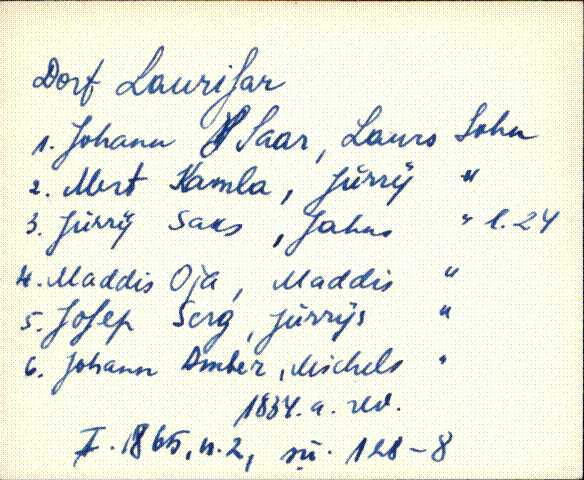 Dorf Laurisar
1. Johann Saar, Laurs Sohn
2. Mert Kamla, Jürry "
3. Jürry Saks, Jahns " l. 24
4. Maddis Oja, Maddis "
5. Josep Serg, Jürrys "
6. Johann Amber, Michels "
1834. a. rev.
I. 1865, n. 2, sü. 128-8